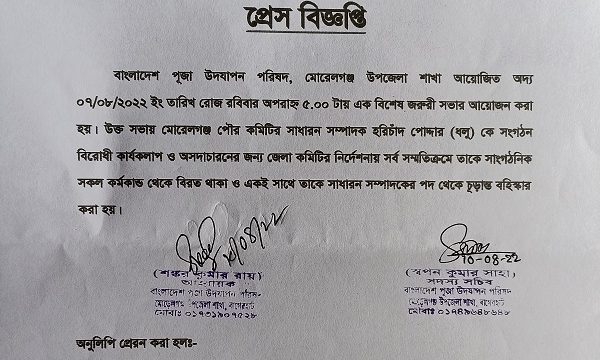 প্রেস বিজ্ঞপ্তি
বাংলাদেশ পূজা উদযাপন পরিষদ, মোরেলগঞ্জ উপজেলা শাখা আয়োজিত অদ্য
০৭/০৮/২০২২ ইং তারিখ রোজ রবিবার অপরাহ্ন ৫.০০ টায় এক বিশেষ জরুরী সভার আয়োজন করা
হয়। উক্ত সভায় মোরেলগঞ্জ পৌর কমিটির সাধারন সম্পাদক হরিচাঁদ পোদ্দার (ধলু) কে সংগঠন
বিরোধী কার্যকলাপ ও অসদাচারনের জন্য জেলা কমিটির নির্দেশনায় সর্ব সম্মতিক্রমে তাকে সাংগঠনিক
সকল কর্মকান্ড থেকে বিরত থাকা ও একই সাথে তাকে সাধারন সম্পাদকের পদ থেকে চূড়ান্ত বহিস্কার
করা হয়।
/08/22
10-08-22
(শঙ্কর কুমার রায়)
আহবায়ক
বাংলাদেশ পূজা উদযাপন পরিষদ-
মোড়েলগঞ্জ উপজেলা শাখা, বাগেরহাট
মোবাঃ ০১৭৩১৯০৭৫২৮
(স্বপন কুমার সাহা)
সদস্য সচিব
বাংলাদেশ পূজা উদযাপন পরিষদ
মোড়েলগঞ্জ উপজেলা শাখা, বাগেরহাট
মোবাঃ ০১৭৪৯৬৪৮৬৪৮
অনুলিপি প্রেরন করা হলঃ-